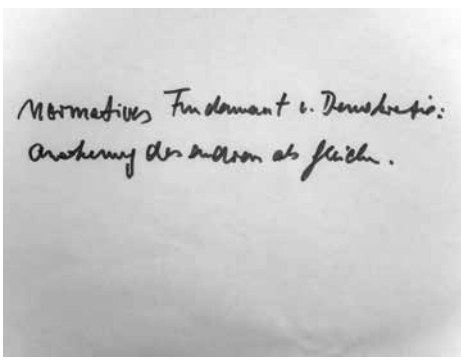 Normatives Fundament v. Demokratie:
Anerkennung des anderen als Gleichen.